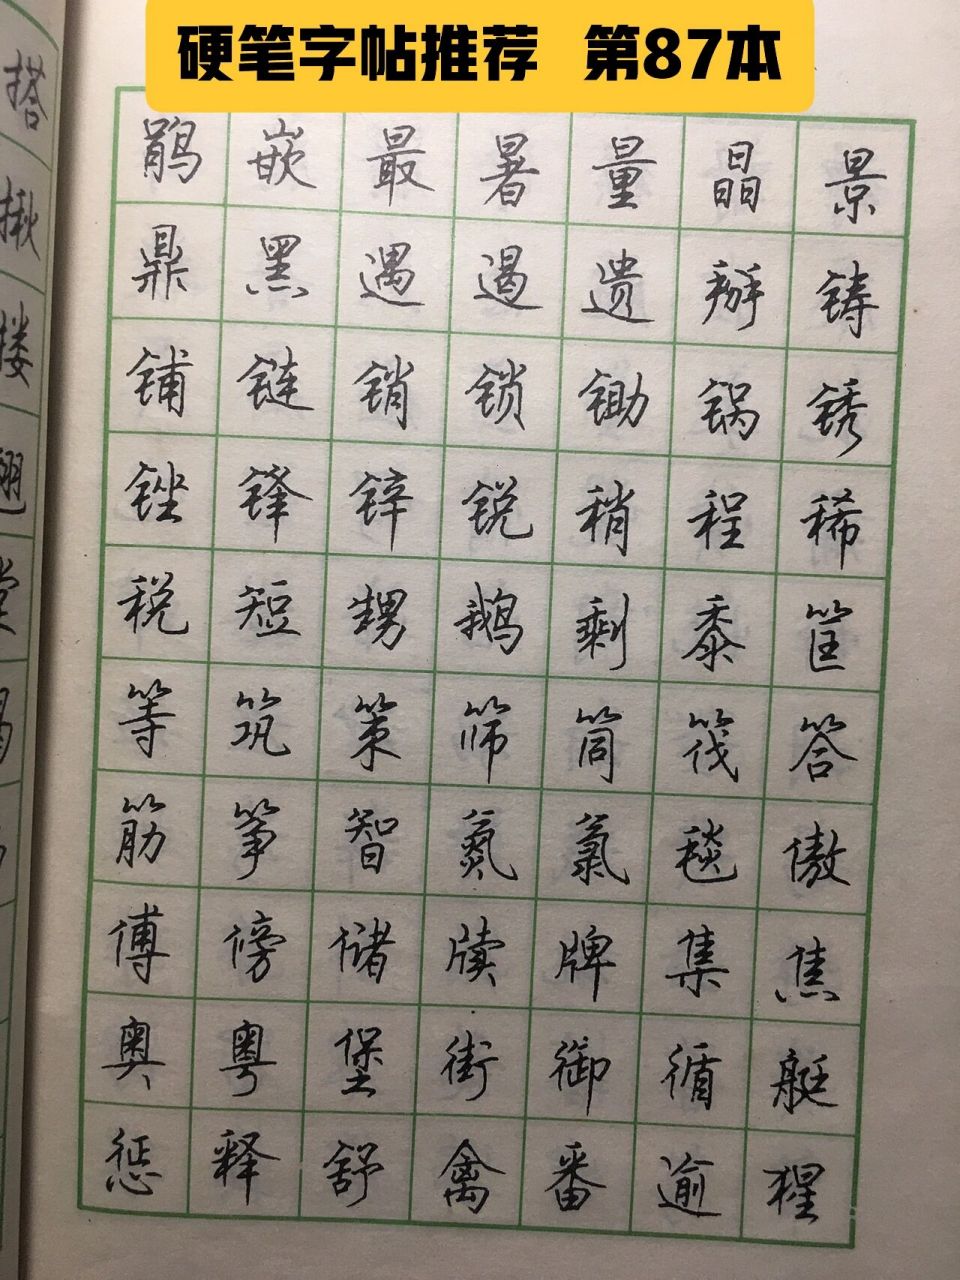 硬笔字帖推荐 第87本
鹃嵌最暑量晶景
鼎黑遇遏遗掰铸
铺链销锁锄锅锈
锉锋锌锐稍程稀
税短甥鹅剩黍筐
等筑策筛筒筏答
筋筝智氮氯毯傲
傅傍储牍牌集焦
奥粤堡街御循艇
惩释舒禽番逾猩
搭
揪
搂
翘